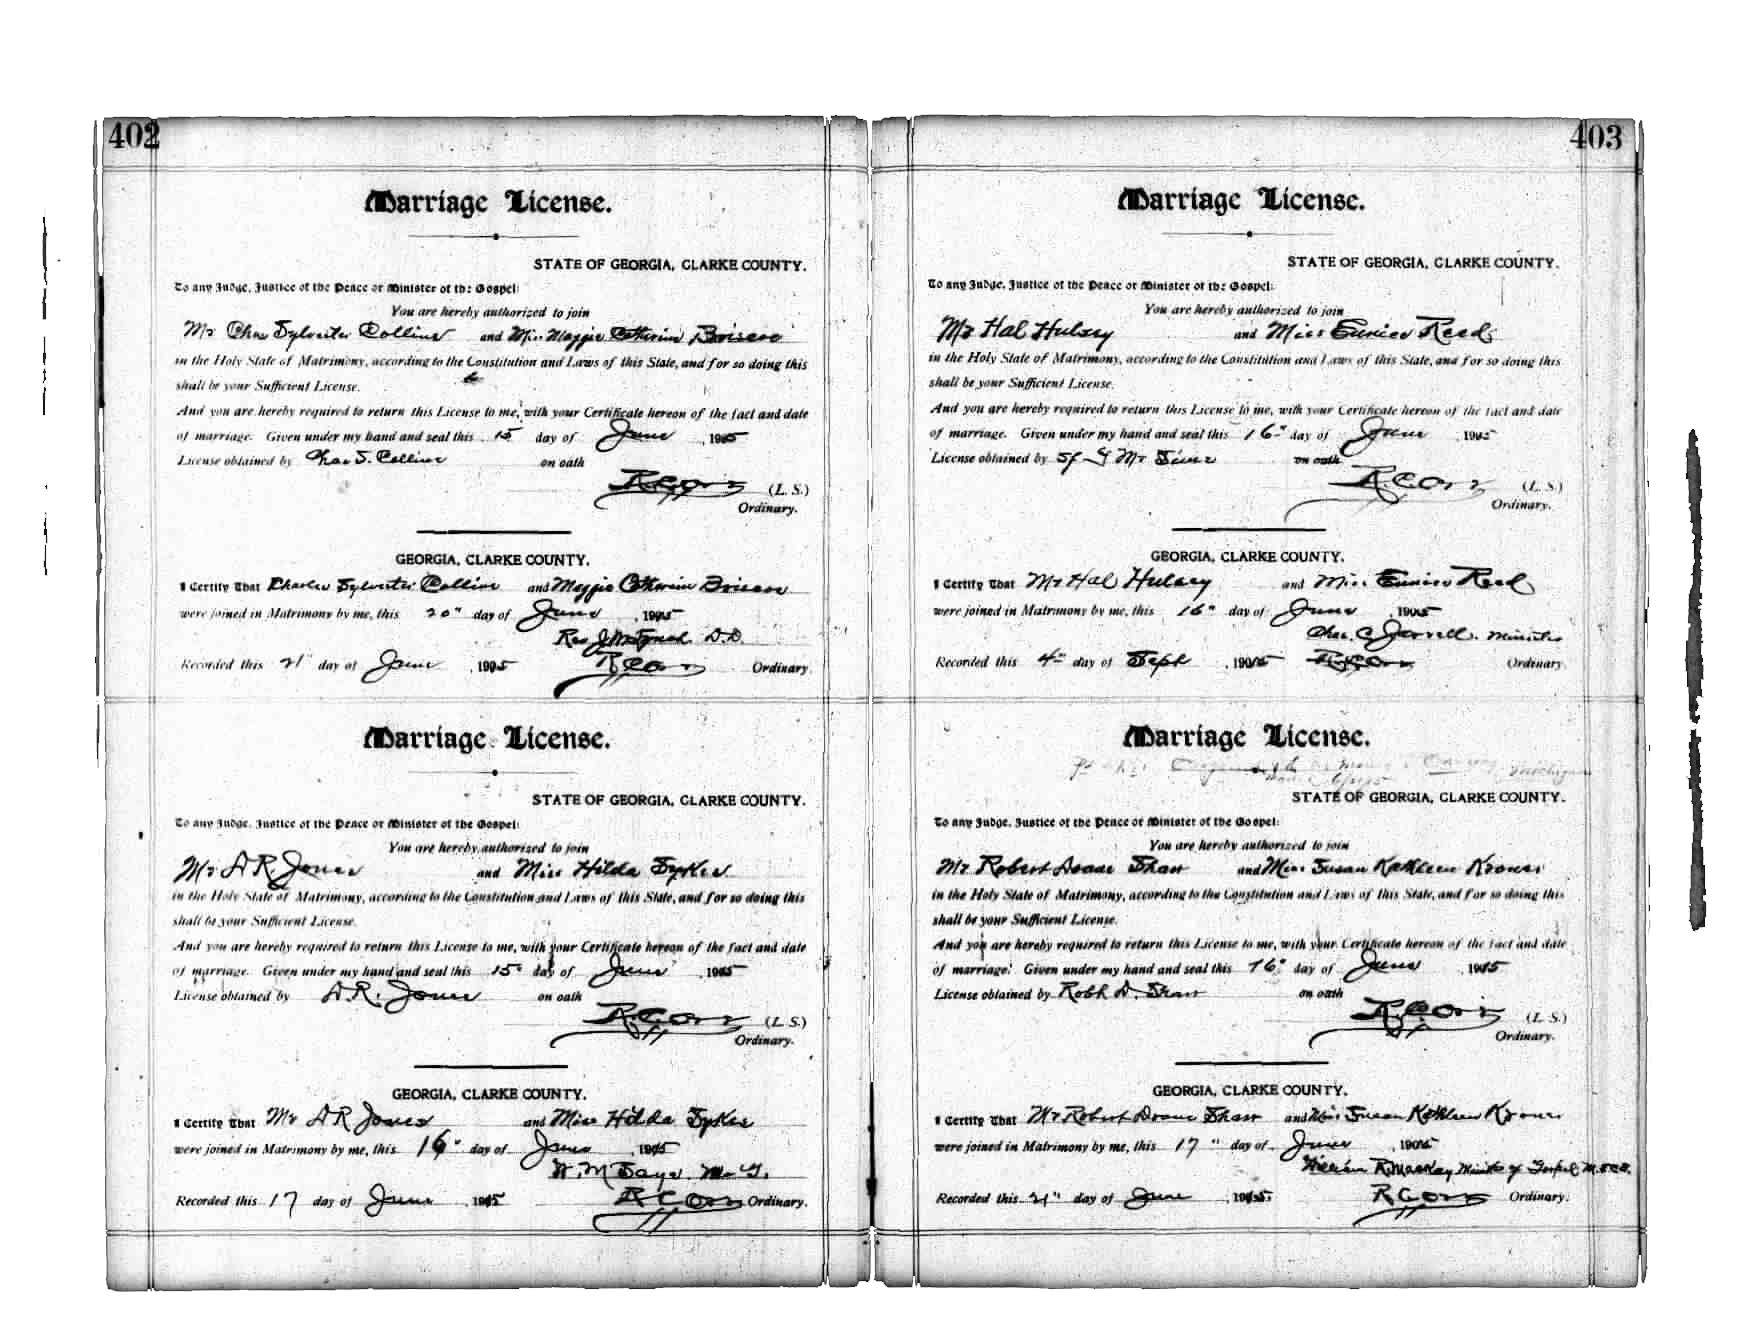 402
Marriage License.
STATE OF GEORGIA, CLARKE COUNTY.
To any Judge, Justice of the Peace or Minister of the Gospel:
You are hereby authorized to join
Mr Chas Sylvester Collins and Miss Maggie Catherine Briscoe
in the Holy State of Matrimony, according to the Constitution and Laws of this State, and for so doing this
shall be your Sufficient License.
And you are hereby required to return this License to me, with your Certificate hereon of the fact and date
of marriage. Given under my hand and seal this 15 day of June, 1905
License obtained by Chas S. Collins on oath
(L. S.)
Ordinary.
GEORGIA, CLARKE COUNTY.
I Certify That Charles Sylvester Collins and Maggie Catherine Briscoe
were joined in Matrimony by me, this 20" day of June, 1905
Rev J. W. D.D.
Recorded this 21" day of June, 1905 Ordinary.
Marriage License.
STATE OF GEORGIA, CLARKE COUNTY.
To any Judge, Justice of the Peace or Minister of the Gospel:
You are hereby authorized to join
Mr A R Jones and Miss Hilda Sykes
in the Holy State of Matrimony, according to the Constitution and Laws of this State, and for so doing this
shall be your Sufficient License.
And you are hereby required to return this License to me, with your Certificate hereon of the fact and date
of marriage. Given under my hand and seal this 15" day of June, 1905
License obtained by A. R. Jones on oath
(L. S.)
Ordinary.
GEORGIA, CLARKE COUNTY.
I Certify That Mr A R Jones and Miss Hilda Sykes
were joined in Matrimony by me, this 16" day of June, 1905
W. M. M. G.
Recorded this 17 day of June, 1905 Ordinary.
403
Marriage License.
STATE OF GEORGIA, CLARKE COUNTY.
To any Judge, Justice of the Peace or Minister of the Gospel:
You are hereby authorized to join
Mr Hal Hulsey and Miss Eunice Reed
in the Holy State of Matrimony, according to the Constitution and Laws of this State, and for so doing this
shall be your Sufficient License.
And you are hereby required to return this License to me, with your Certificate hereon of the fact and date
of marriage. Given under my hand and seal this 16" day of June, 1905
License obtained by on oath
(L. S.)
Ordinary.
GEORGIA, CLARKE COUNTY.
I Certify That Mr Hal Hulsey and Miss Eunice Reed
were joined in Matrimony by me, this 16" day of June, 1905
Chas. C. Jarrell. Minister
Recorded this 4" day of Sept, 1905 Ordinary.
Marriage License.
STATE OF GEORGIA, CLARKE COUNTY.
To any Judge, Justice of the Peace or Minister of the Gospel:
You are hereby authorized to join
Mr Robert Doane Shaw and Miss Susan Kathleen Kroner
in the Holy State of Matrimony, according to the Constitution and Laws of this State, and for so doing this
shall be your Sufficient License.
And you are hereby required to return this License to me, with your Certificate hereon of the fact and date
of marriage. Given under my hand and seal this 16" day of June 1905
License obtained by Robt D. Shaw on oath
(L. S.)
Ordinary.
GEORGIA, CLARKE COUNTY.
I Certify That Mr Robert Doane Shaw and Miss Susan Kathleen Kroner
were joined in Matrimony by me, this 17" day of June, 1905
R. Mackay Minister of Gospel
Recorded this 21" day of June, 1905. Ordinary.